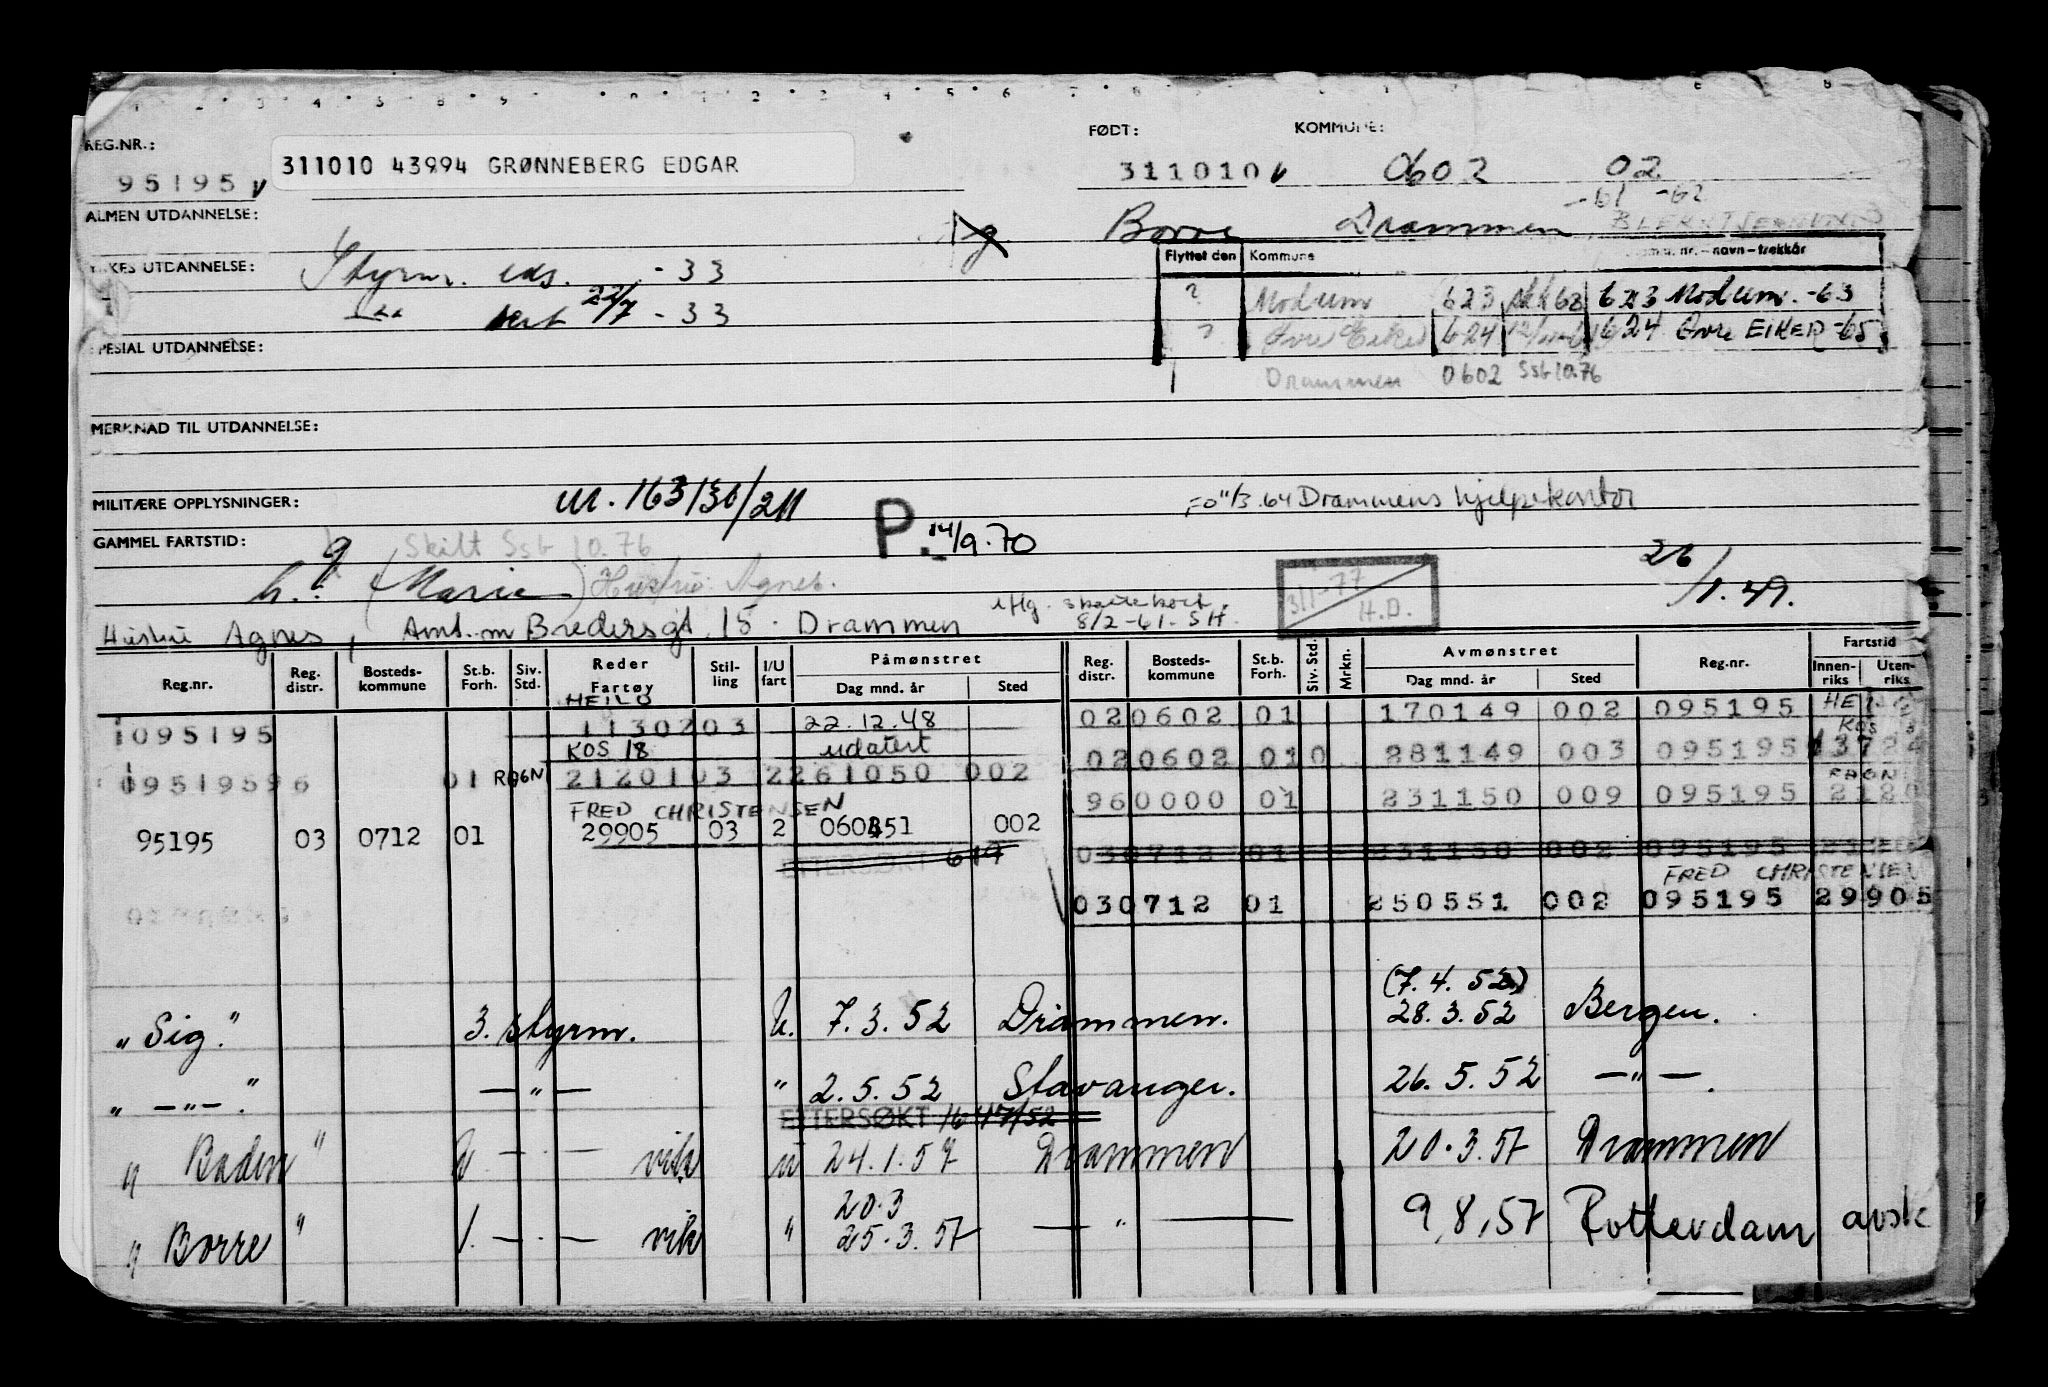 REG.NR.: FØDT: KOMMUNE:
95195 311010 43994 GRØNNEBERG EDGAR 311010 0602 02
-61 -62
ALMEN UTDANNELSE: Borre Drammen
YRKES UTDANNELSE: Styrm. eds. -33
Flyttet den Kommune nr. - navn - trekkår
22/7 - 33
? Modum 623 623 Modum. -63
? Øvre Eiker 624 624 Øvre EIKER -65
SPESIAL UTDANNELSE:
Drammen 0602 Ssb 10.76
MERKNAD TIL UTDANNELSE:
MILITÆRE OPPLYSNINGER: M. 163130/211 FO 11/3.64 Drammens hjelpekontor
GAMMEL FARTSTID: g Skilt Ssb 10.76 P. 14/9.70
26/1.49.
h.: (Marie) Hustru: Agnes. 3/1-77 H.D.
iflg. skattekort 8/2-61. SH.
Hustru Agnes, Amt.m Bredersgt. 15. Drammen
Reg.nr. Reg. distr. Bosteds-kommune St.b. Forh. Siv. Std. Reder Fartøy Stil-ling I/U fart Påmønstret Dag mnd. år Sted Reg. distr. Bosteds-kommune St.b. Forh. Siv. Std. Mrkn. Avmønstret Dag mnd. år Sted Reg.nr. Fartstid Innen-riks Uten-riks
HEILO
1095195 11302 03 22.12.48 02 0602 01 170149 002 095195
KOS 18 udatert 02 0602 01 0 281149 003 095195 13724
09519596 01 RAGNI 21201 03 2 261050 002 96 0000 01 231150 009 095195 2120
FRED CHRISTENSEN
95195 03 0712 01 29905 03 2 060451 002
ETTERSØKT 619 030712 01 231150 002 095195
FRED CHRISTENSEN
030712 01 250551 002 095195 29905
(7.4.52)
"Sig." 3. styrm. U. 7.3.52 Drammen. 28.3.52 Bergen.
" —"—. —"— " 2.5.52 Stavanger. 26.5.52 —"—.
ETTERSØKT 16 4/7/52
" Baden " 2. —·— vik u 24.1.57 Drammen 20.3.57 Drammen
20.3
" Borre " 1. —·— vik " 25.3.57 —"— 9,8,57 Rotterdam avsk